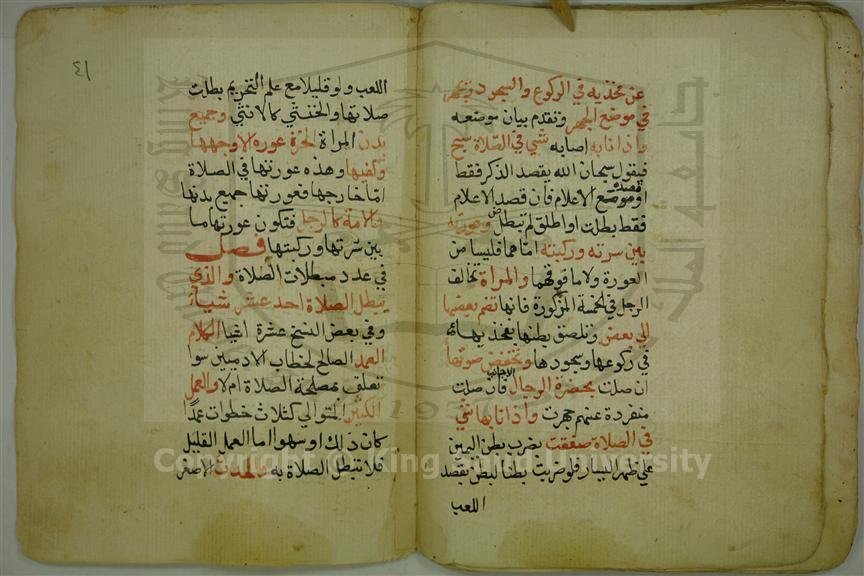 عن فخذيه في الركوع والسجود ويجهر
في موضع الجهر وتقدم بيان موضعه
واذا نابه اصابه شي في الصلاة سبح
فيقول سبحان الله يقصد الذكر فقط
او قصده مع الاعلام فان قصد الاعلام
فقط بطلت او اطلق لم تبطل وعورته
بين سرته وركبته اما هما فليسا من
العورة ولا ما فوقهما والمراة تخالف
الرجل في الخمسة المذكورة فانها تضم بعضها
الي بعض وتلصق بطنها بفخذيها
في ركوعها وسجودها وتخفض صوتها
ان صلت بحضرة الرجال الاجانب فان صلت
منفردة عنهم جهرت واذا نابها شي
في الصلاة صفقت بضرب بطن اليمين
علي ظهر اليسار فلو ضربت بطنا لبطن بقصد
اللعب
٤١
اللعب ولو قليلا مع علم التحريم بطلت
صلاتها والخنثي كالانثي وجميع
بدن المراة الحرة عورة الا وجهها
وكفيها وهذه عورتها في الصلاة
اما خارجها فعورتها جميع بدنها
والامة كالرجل فتكون عورتها ما
بين سرتها وركبتها فصل
في عدد مبطلات الصلاة والذي
تبطل الصلاة احد عشر شيأ
وفي بعض النسخ عشرة اشيا الكلام
العمد الصالح لخطاب الادميين سوا
تعلق بمصلحة الصلاة ام لا والعمل
الكثير المتوالي كثلاث خطوات عمدا
كان ذلك او سهوا اما العمل القليل
فلا تبطل الصلاة به والحدث الاصغر
جامعة الملك سعود
1957
Copyright © King Saud University